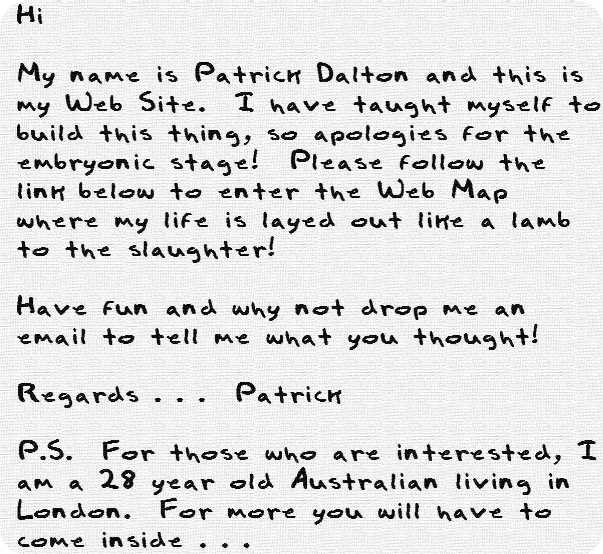 Hi
My name is Patrick Dalton and this is
my Web Site.  I have taught myself to
build this thing, so apologies for the
embryonic stage!  Please follow the
link below to enter the Web Map
where my life is layed out like a lamb
to the slaughter!
Have fun and why not drop me an
email to tell me what you thought!
Regards . . .  Patrick
P.S.  For those who are interested, I
am a 28 year old Australian living in
London.  For more you will have to
come inside . . .